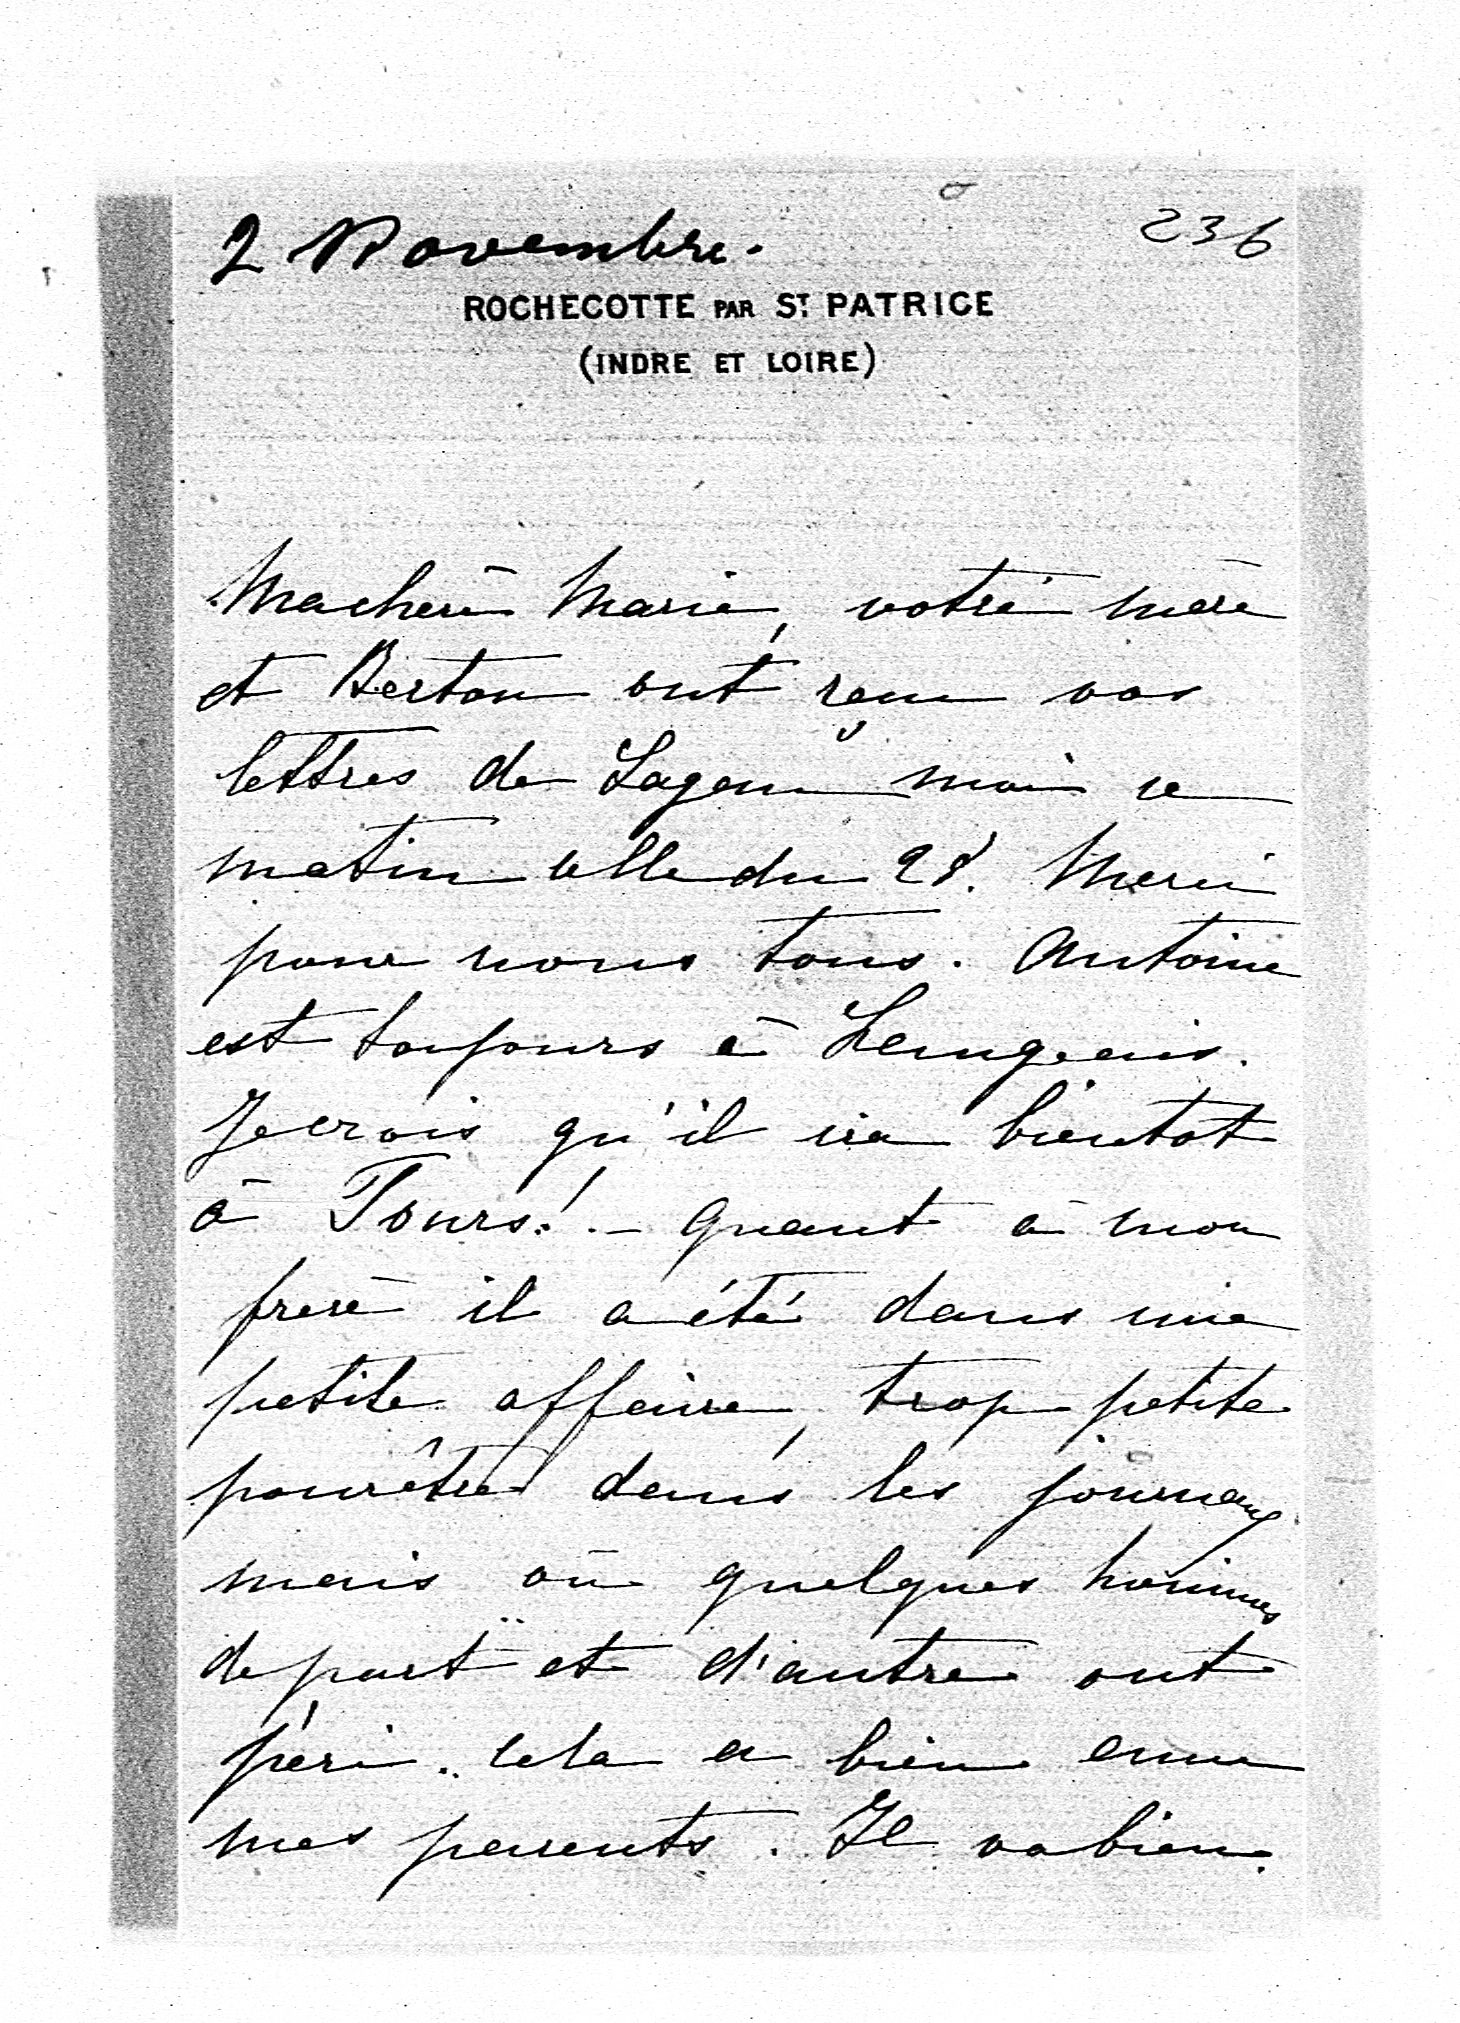 2 Novembre.
236
ROCHECOTTE PAR ST PATRICE
(INDRE ET LOIRE)
Ma chère Marie, votre mère
et Berton ont reçu vos
lettres de Lagow moi ce
matin celle du 28. Merci
pour nous tous. Antoine
est toujours à Langeais.
Je crois qu'il ira bientot
à Tours! - Quant à mon
frère il a été dans une
petite affaire, trop petite
pour être dans les journaux
mais où quelques hommes
de part et d'autre ont
péri.. Cela a bien emu
mes parents. Il va bien.